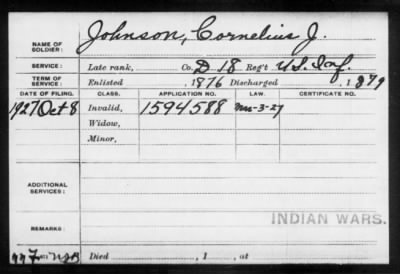 NAME OF SOLDIER: Johnson, Cornelius J.
SERVICE: Late rank, Co. D 18 Reg't U.S. Inf.
TERM OF SERVICE: Enlisted , 1876 Discharged , 1879
DATE OF FILING. CLASS. APPLICATION NO. LAW. CERTIFICATE NO.
1927 Oct 8 Invalid, 1594588 -3-27
Widow,
Minor,
ADDITIONAL SERVICES:
INDIAN WARS.
REMARKS:
Died , 1 , at